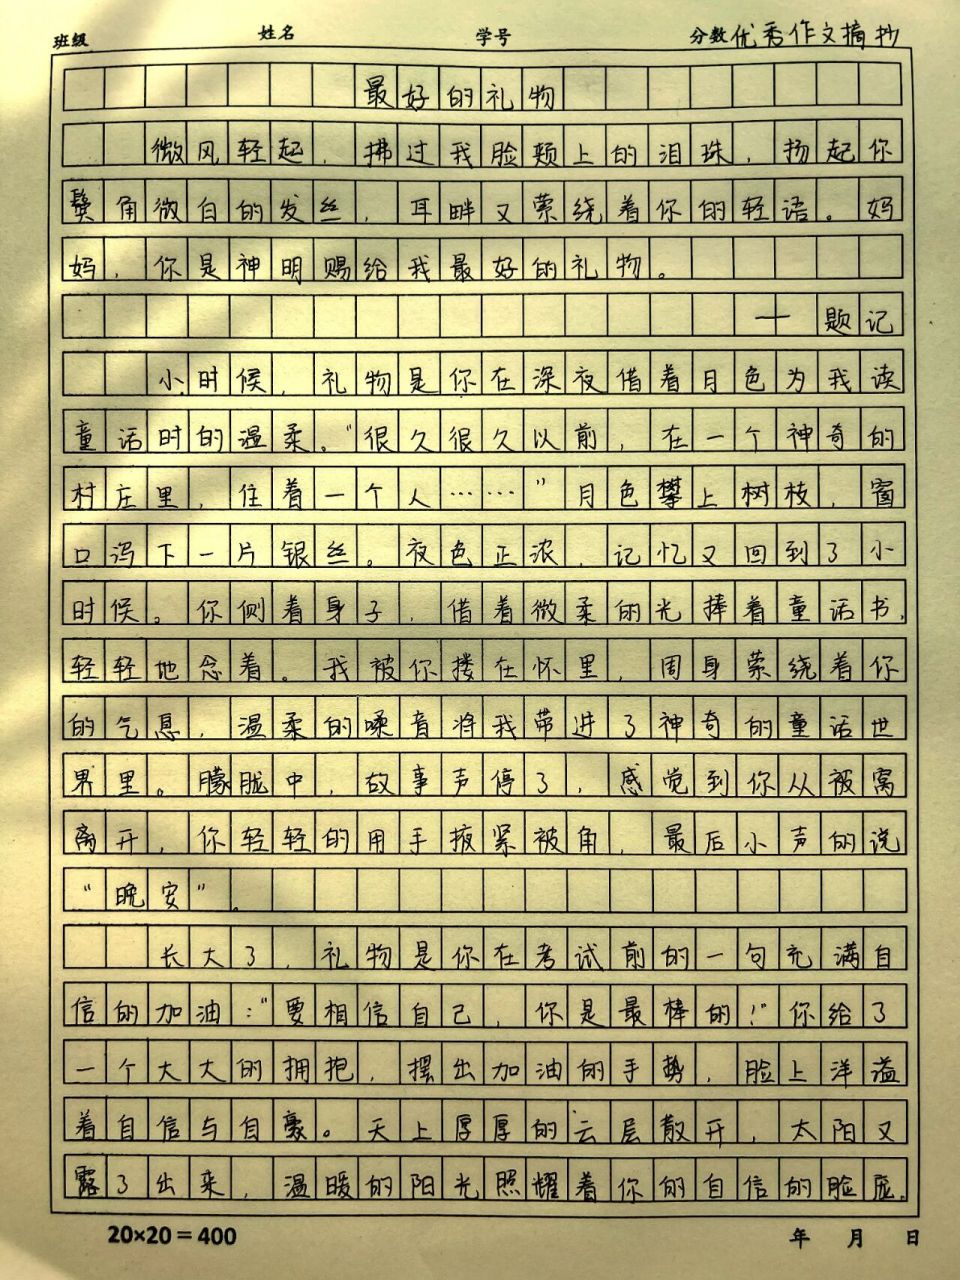 班级 姓名 学号 分数 优秀作文摘抄
最好的礼物
微风轻起，拂过我脸颊上的泪珠，扬起你
鬓角微白的发丝，耳畔又萦绕着你的轻语。妈
妈，你是神明赐给我最好的礼物。
——题记
小时候，礼物是你在深夜借着月色为我读
童话时的温柔。“很久很久以前，在一个神奇的
村庄里，住着一个人……”月色攀上树枝，窗
口泻下一片银丝。夜色正浓，记忆又回到了小
时候。你侧着身子，借着微柔的光捧着童话书，
轻轻地念着。我被你搂在怀里，周身萦绕着你
的气息，温柔的嗓音将我带进了神奇的童话世
界里。朦胧中，故事声停了，感觉到你从被窝
离开，你轻轻的用手掖紧被角，最后小声的说
“晚安”。
长大了，礼物是你在考试前的一句充满自
信的加油：“要相信自己，你是最棒的！”你给了
一个大大的拥抱，摆出加油的手势，脸上洋溢
着自信与自豪。天上厚厚的云层散开，太阳又
露了出来，温暖的阳光照耀着你的自信的脸庞。
20×20=400 年 月 日